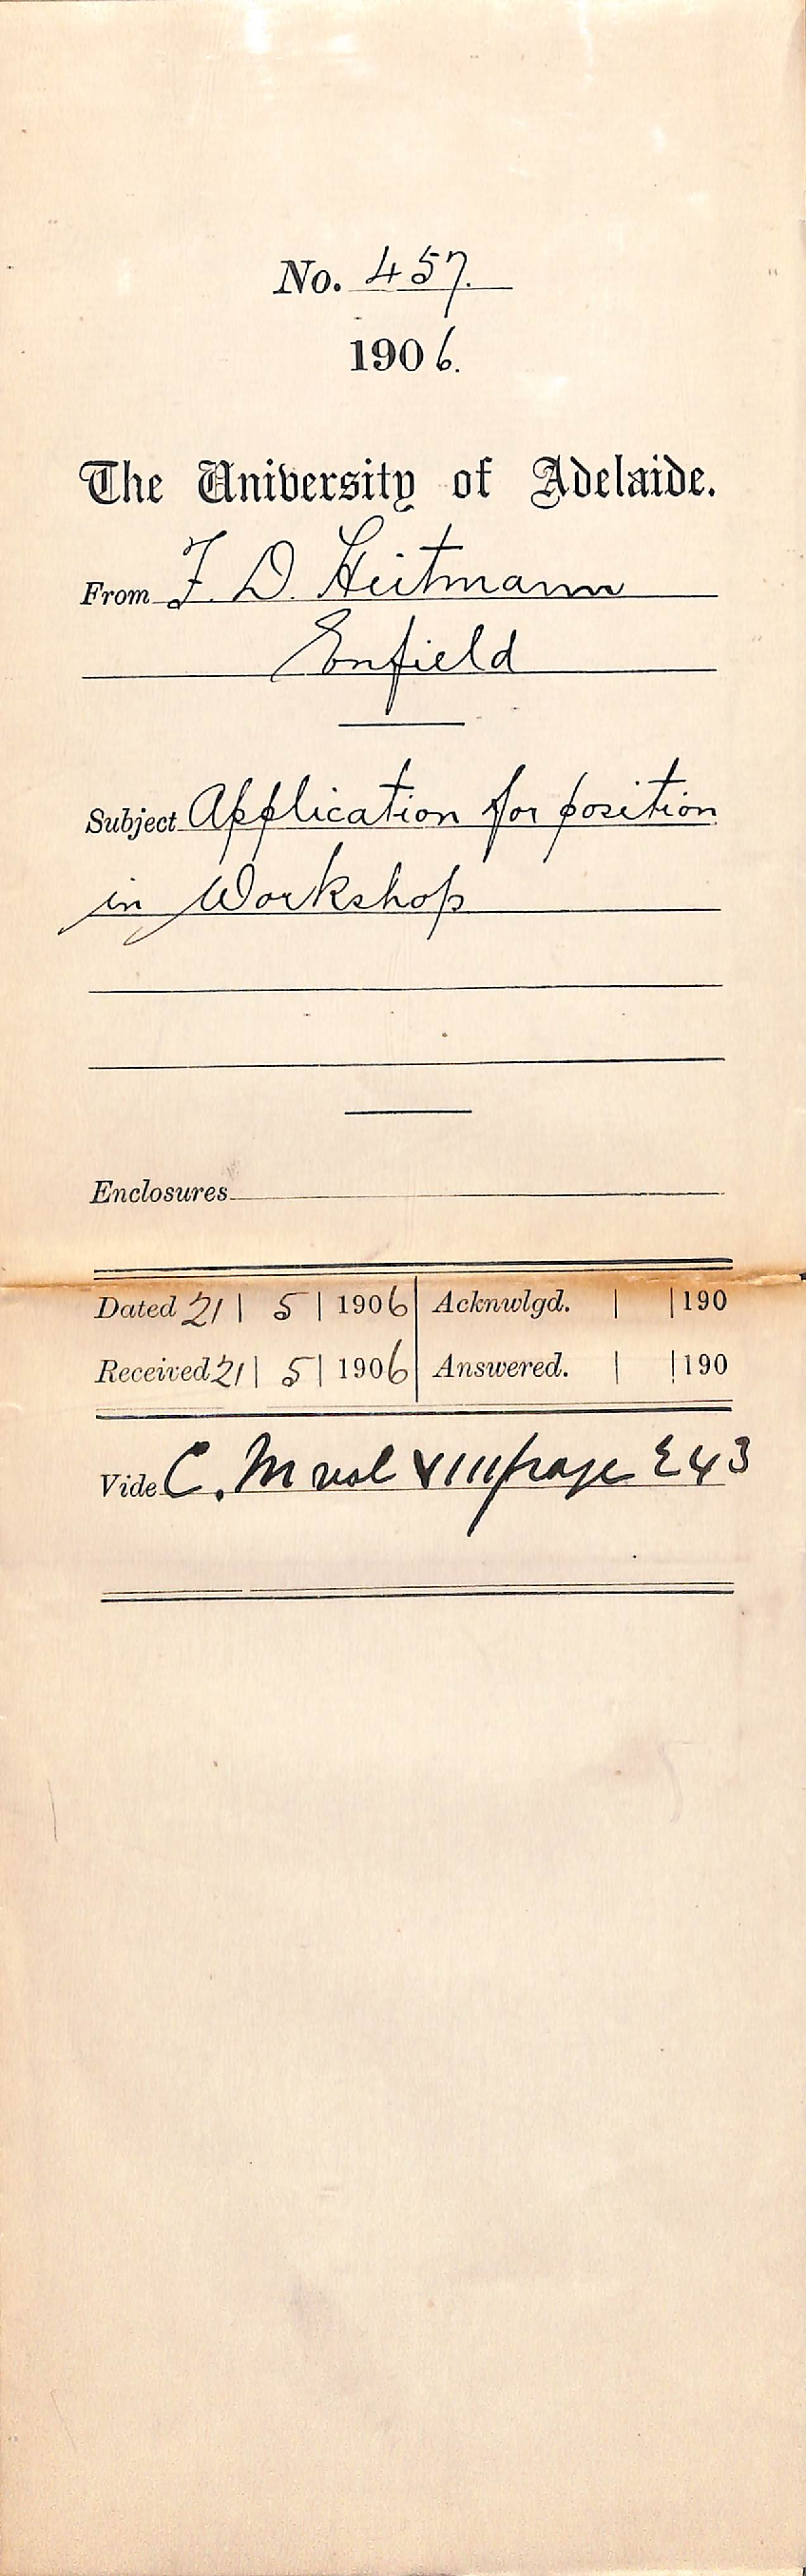 No. 457.
1906.
The University of Adelaide.
From F. D. Heitmann
Enfield
Subject Application for position
in Workshop
Enclosures
Dated 21 | 5 | 1906 Acknwlgd. | | 190
Received 21 | 5 | 1906 Answered. | | 190
Vide C. M vol VIII page 243